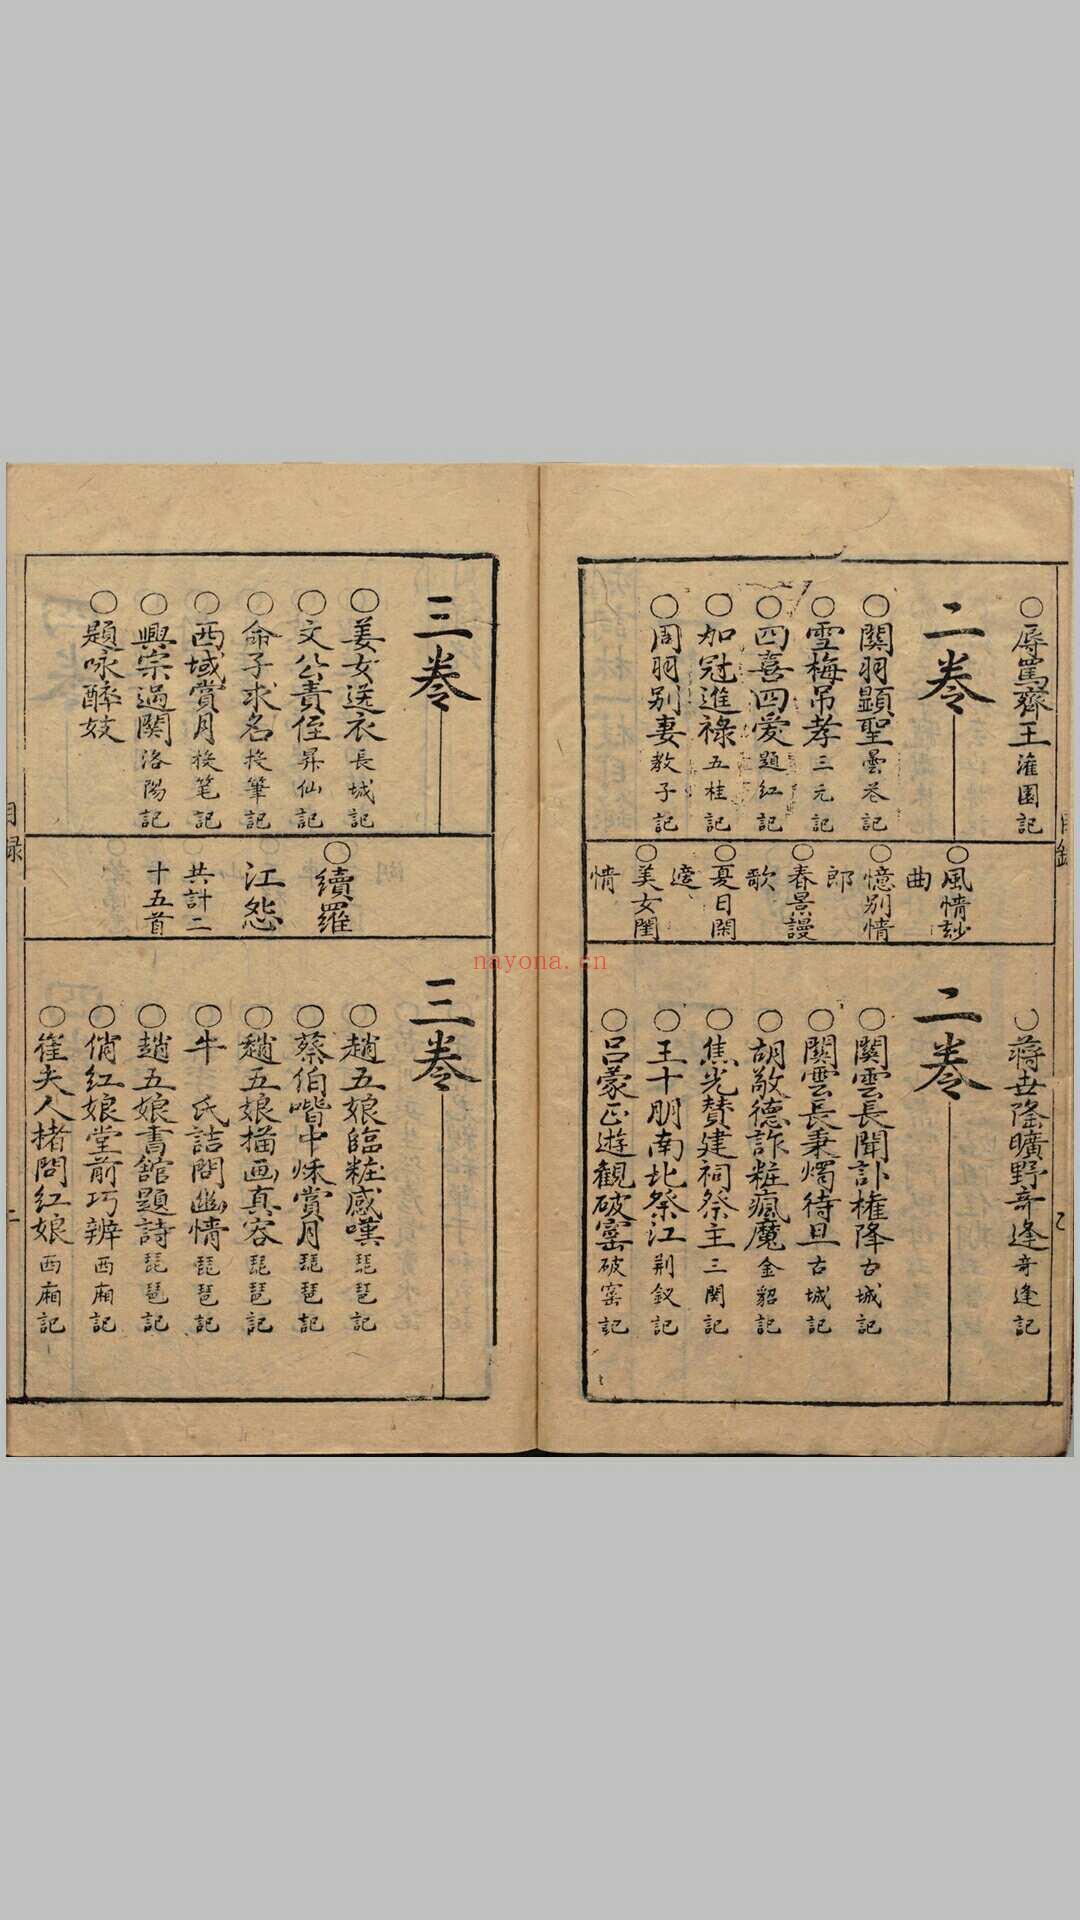 ○辱罵齊王灌園記
二巻
○關羽顯聖曇花記
○雪梅吊孝三元記
○四喜四愛題紅記
○加冠進祿五桂記
○周羽別妻教子記
○風情玅
曲
○憶別情
郎
○春景謾
歌
○夏日閑
○美女閨
情
○蔣世隆曠野竒逢竒逢記
二巻
○關雲長聞訃權降古城記
○關雲長秉燭待旦古城記
○胡敬德詐粧瘋魔金貂記
○焦光贊建祠祭主三關記
○王十朋南北祭江荆釵記
○呂蒙正遊觀破窰破窑記
目錄
三巻
○姜女送衣長城記
○文公責侄昇仙記
○命子求名投筆記
○西域賞月投笔記
○興宗過關洛陽記
○題咏醉妓
○續羅
江怨
共計二
十五首
三巻
○趙五娘臨粧感嘆琵琶記
○蔡伯喈中秌賞月琵琶記
○趙五娘描画真容琵琶記
○牛氏詰問幽情琵琶記
○趙五娘書舘題詩琵琶記
○俏紅娘堂前巧辨西廂記
○崔夫人拷問紅娘西廂記
目録
nayona.cn